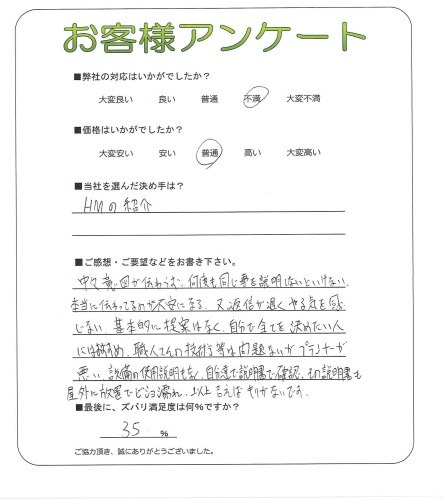 お客様アンケート
■弊社の対応はいかがでしたか？
大変良い 良い 普通 不満 大変不満
■価格はいかがでしたか？
大変安い 安い 普通 高い 大変高い
■当社を選んだ決め手は？
HMの紹介
■ご感想・ご要望などをお書き下さい。
中々意図が伝わらず、何度も同じ事を説明しないといけない。
本当に伝わってるのか不安になる。又返信が遅くやる気を感
じない。基本的に提案はなく、自分で全てを決めたい人
にはおすすめ。職人さんの技術等は問題ないがプランナーが
悪い。設備の使用説明もなく、自分達で説明書で確認、その説明書も
屋外に放置でビショ濡れ、以上言えばキリがないです。
■最後に、ズバリ満足度は何%ですか？
35 %
ご協力頂き、誠にありがとうございました。